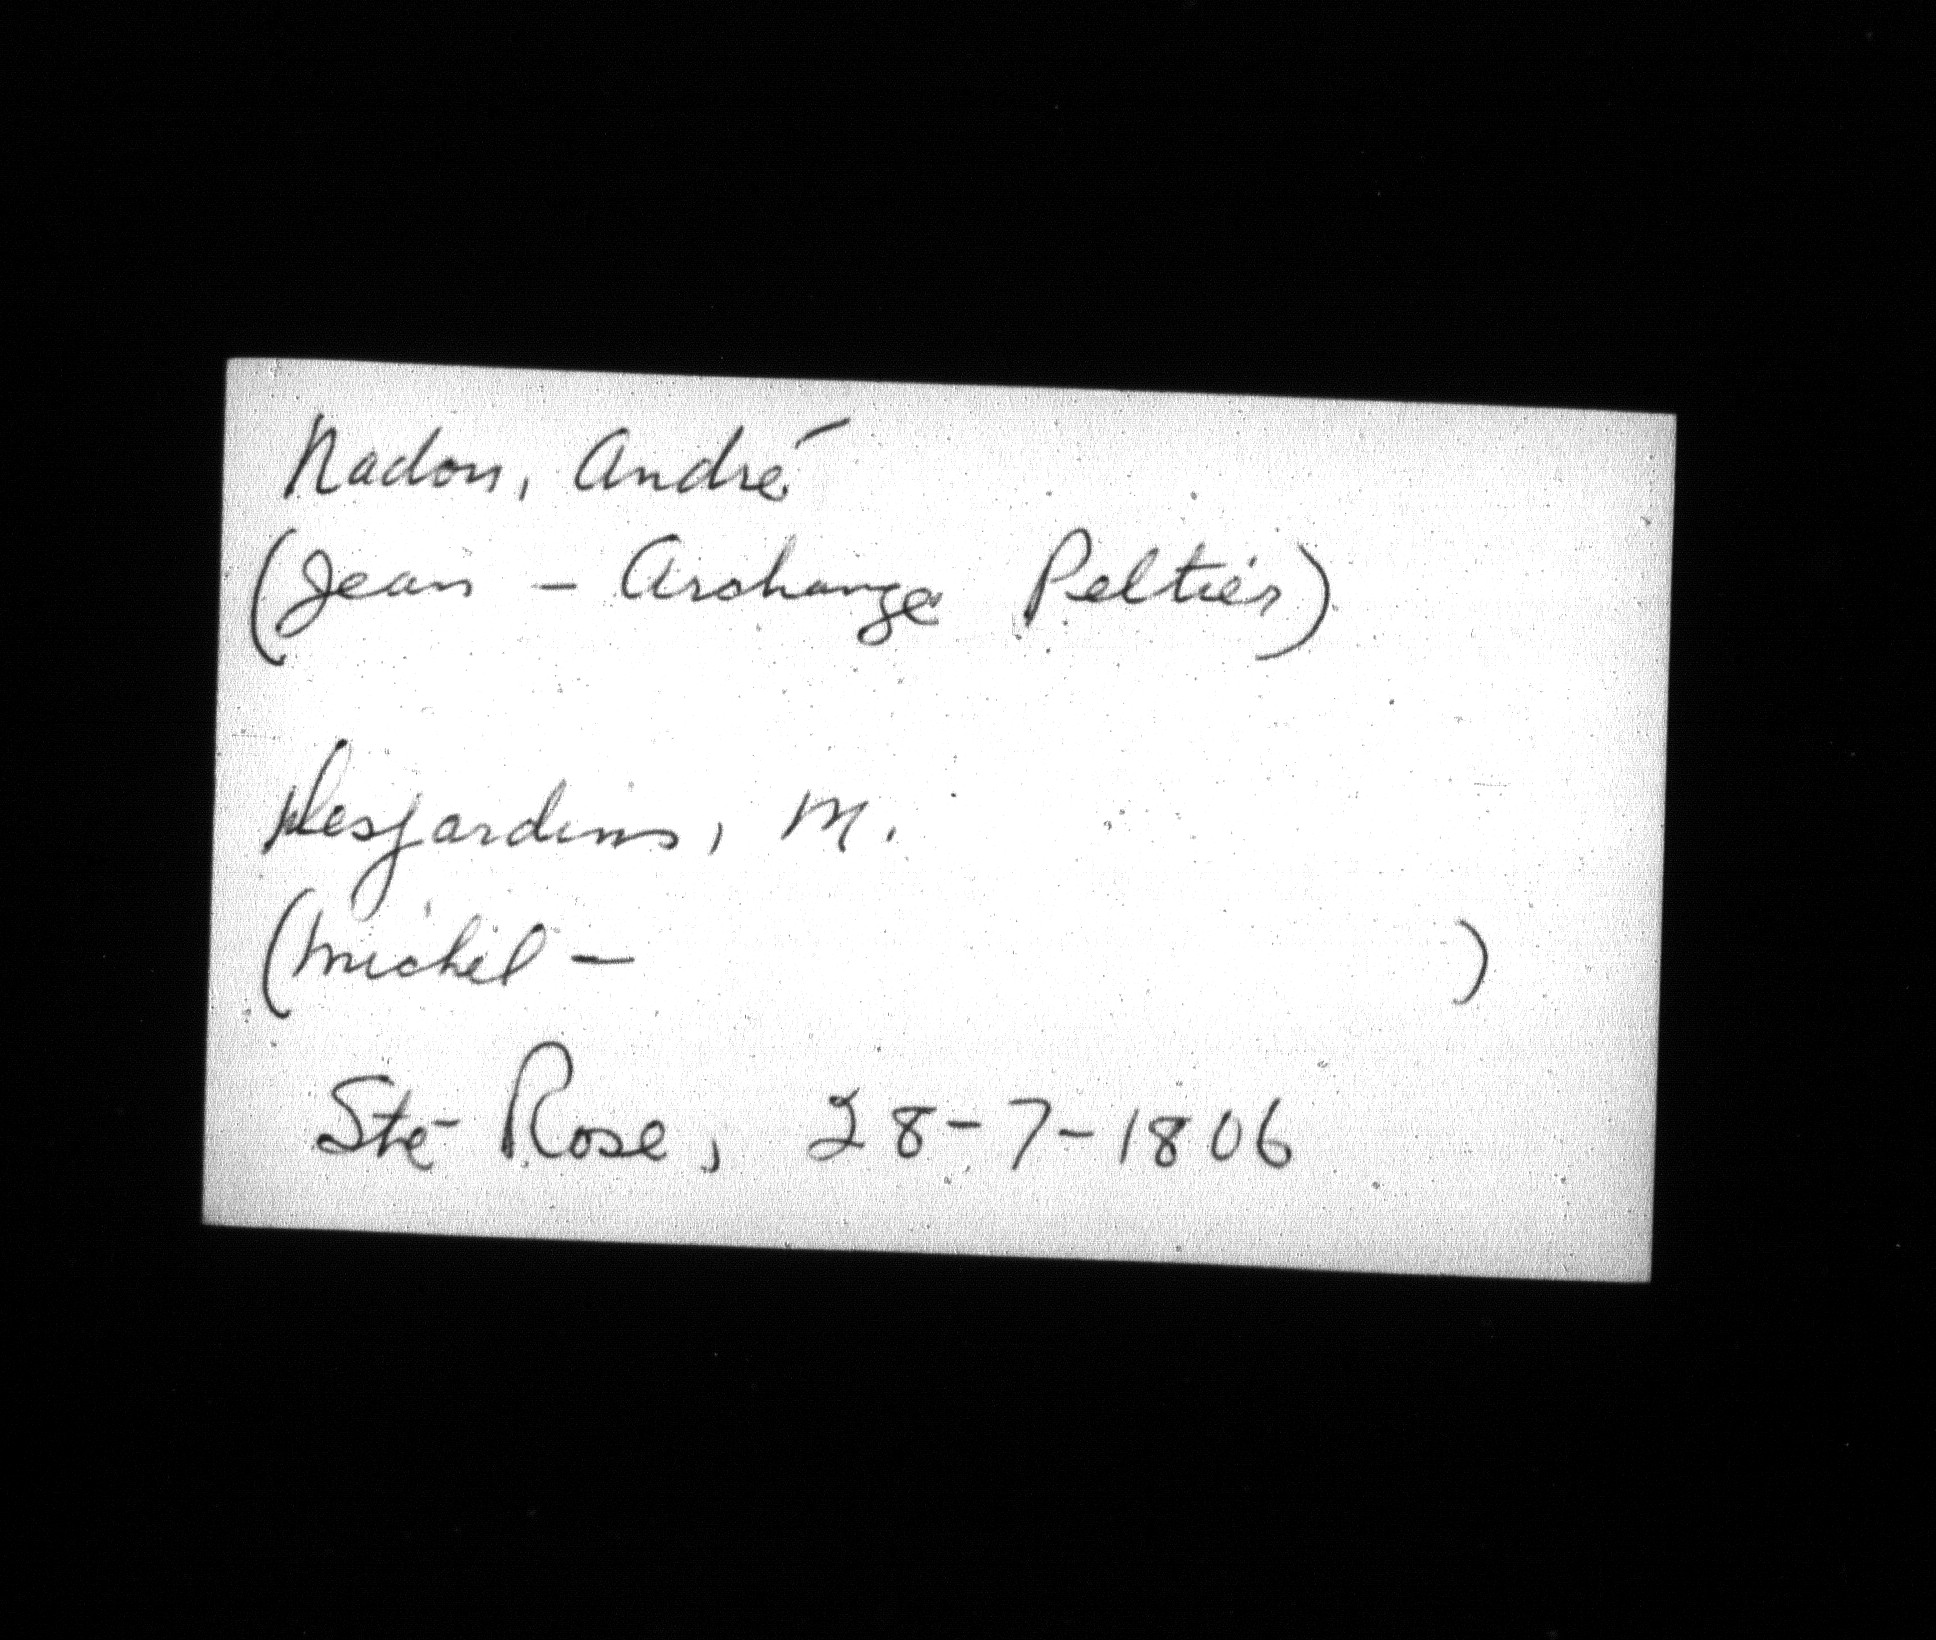 Nadon, André
(Jean - Archange Peltier)
Desjardins, M.
(Michel - )
Ste-Rose, 28-7-1806